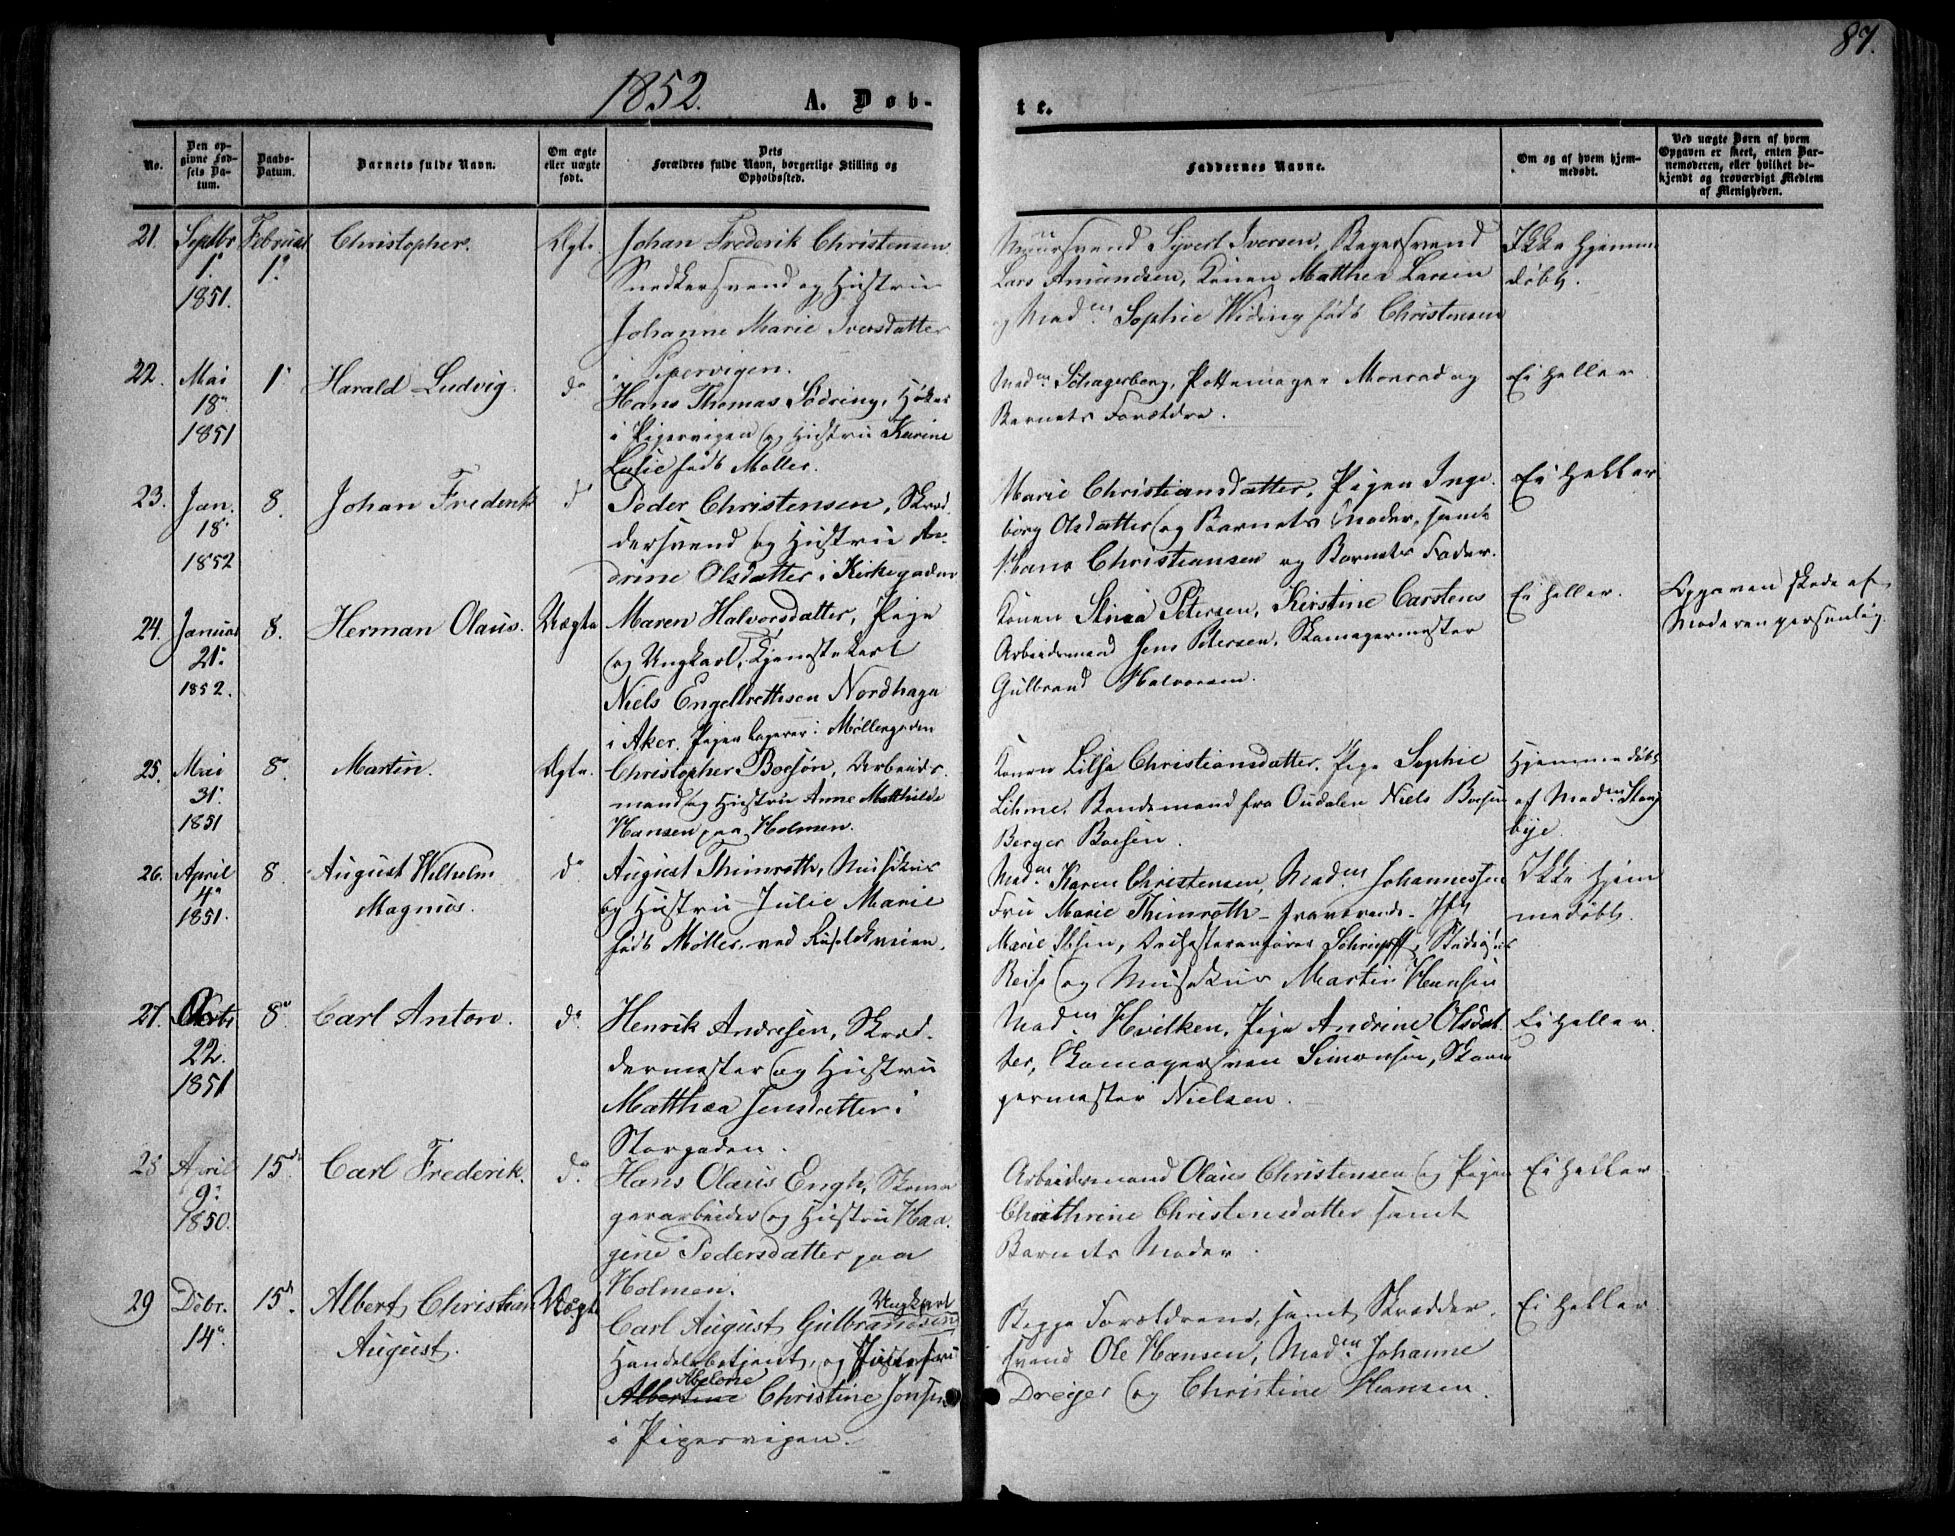 87.
1852.
A. Døb-
te.
No.
Den opgivne Fødsels Datum.
Daabs-Datum.
Barnets fulde Navn.
Om ægte eller uægte født.
Dets Forældres fulde Navn, borgerlige Stilling og Opholdssted.
Faddernes Navne.
Om og af hvem hjemmedøbt.
Ved uægte Børn af hvem Opgaven er skeet, enten Barnemoderen, eller hvilket bekjendt og troværdigt Medlem af Menigheden.
21.
Septbr
1.
1851.
Februar
1.
Christopher.
Ægte.
Johan Frederik Christensen
Snedkersvend og Hustru
Johanne Marie Iversdatter
i Pipervigen.
Muursvend Syvert Iversen, Bagersvend
Lars Amundsen, Konen Matthea Larsen
og Madm Sophie Widing født Christensen
Ikke hjemme
døbt.
22.
Mai
18.
1851
1.
Harald Ludvig.
do
Hans Thomas Södring, Høker
i Pipervigen og Hustru Karine
født Møller.
Madm Schagerberg, Pottemager Monrad og
Barnets Forældre.
Ei heller
23.
Jan.
18
1852
8.
Johan Frederik
do
Peder Christensen, Skræd
dersvend og Hustru An-
drine Olsdatter i Kirkegaden
Marie Christiansdatter, Pigen Inge
borg Olsdatter og Barnets Moder, samt
Hans Christiansen og Barnets Fader.
Ei heller
24.
Januar
21.
1852.
8.
Herman Olaus.
Uægte
Maren Halvorsdatter, Pige
og Ungkarl, Tjenestekarl
Niels Engelbrethsen Nordhagn
i Aker. Pigen logerer i Møllergaden
Konen Stina Petersen, Kirstine Carstens
Arbeidsmand Jens Petersen, Skomagermester
Gulbrand Halvorsen.
Ei heller.
Opgaven skede af
Moderen personlig.
25.
Mai
31.
1851
8.
Martin.
Ægte.
Christopher Boesøn, Arbeids
mand og Hustru Anne Matthilde
Hansen paa Holmen.
Konen Lilsa Christiansdatter, Pige Sophie
Lihme, Bondemand fra Oudalen Niels Boesen
Berger Boesen.
Hjemmedøbt
af Madm
bye.
26.
April
4.
1851.
8.
August Wilhelm
Magnus.
do
August Thimroth, Musikus
og Hustru Julie Marie
født Møller, ved Ruseløkveien.
Madm Karen Christensen, Madm Johannessen
Fru Marie Thimroth - fraværende - Jfr
Marie Ibsen, Orchesteranfører Schrumpff, Studiosus
Reise og Musikus Martin Hansen
Ikke hjem
medøbt.
27.
22.
1851
8.
Carl Anton.
do
Henrik Andresen, Skræd.
dermester og Hustru
Matthea Jensdatter i
Storgaden.
Madm Hvilken, Pige Andrine Olsdat
ter, Skomagersvend Simonsen, Skoma
germester Nielsen.
Ei heller.
28
April
9.
1850.
15de
Carl Frederik.
do
Hans Olaus Engh, Skoma
gerarbeider og Hustru Haa
gine Pedersdatter paa
Holmen.
Arbeidsmand Olaus Christensen og Pigen
Chrithrine Christensdatter samt
Barnets Moder.
Ei heller
29
Debr.
14.
15d.
Albert Christian
August.
Uægte
Ungkarl
Carl August Gulbrandsen
Handelsbetjent, og
Abelone
Albertine Christine Jonsen
i Pipervigen.
Begge Forældrene, samt Skrædder
svend Ole Hansen, Madm Johanne
Dreyer og Christine Hansen.
Ei heller